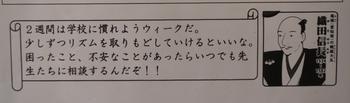 ２週間は学校に慣れようウィークだ。
少しずつリズムを取りもどしていけるといいな。
困ったこと、不安なことがあったらいつでも先
生たちに相談するんだぞ！！
織田信長